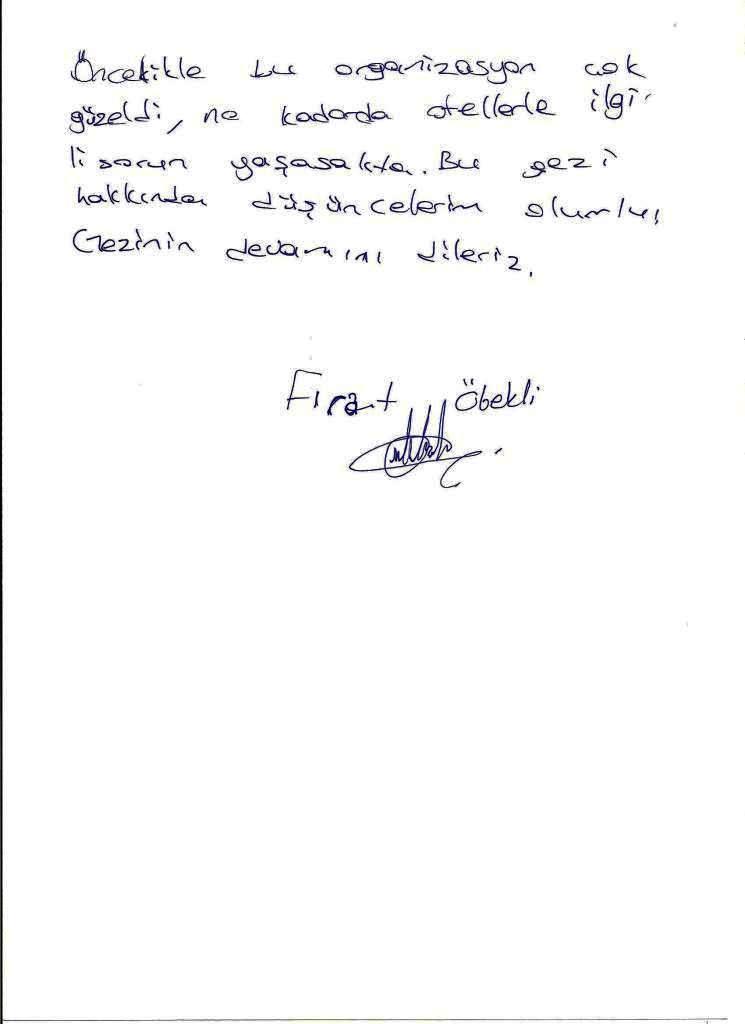 Öncekikle bu organizasyon çok
güzeldi, ne kadarda otellerle ilgi-
li sorun yaşasakta. Bu gezi
hakkında düşüncelerim olumlu,
Gezinin devamını dileriz.
Fırat Öbekli